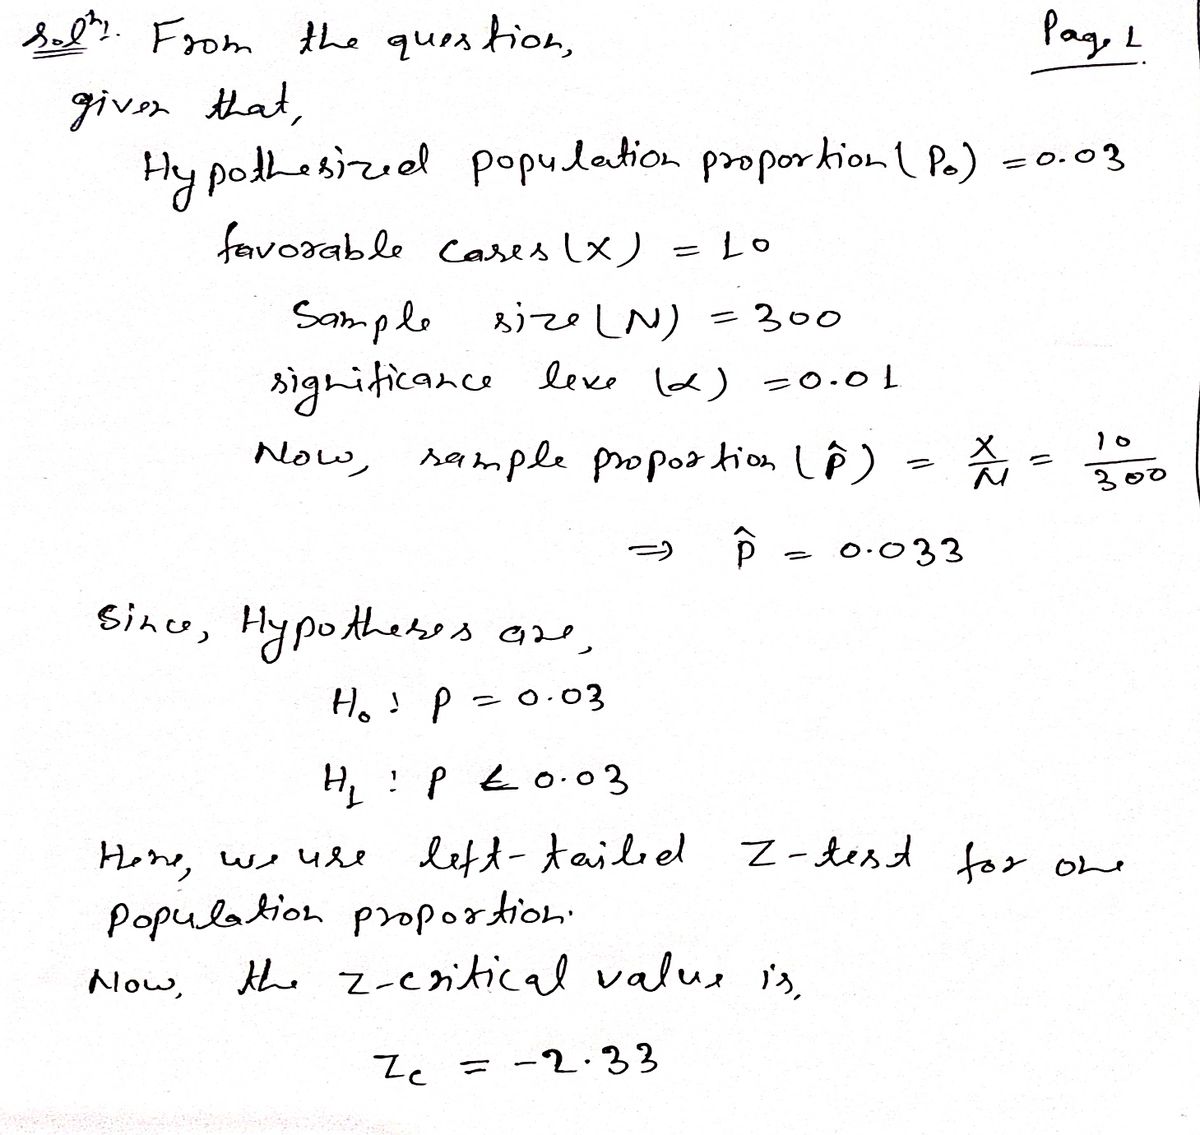 Solⁿ:. From the question,
Page 1
given that,
Hypothesized population proportion (P₀) = 0.03
favorable cases (X) = 10
Sample size (N) = 300
significance leve (α) = 0.01
Now, sample proportion (p̂) = X/N = 10/300
⇒ p̂ = 0.033
Since, Hypotheses are,
H₀ : P = 0.03
H₁ : P < 0.03
Here, we use left-tailed Z-test for one
population proportion.
Now, the z-critical value is,
Zc = -2.33